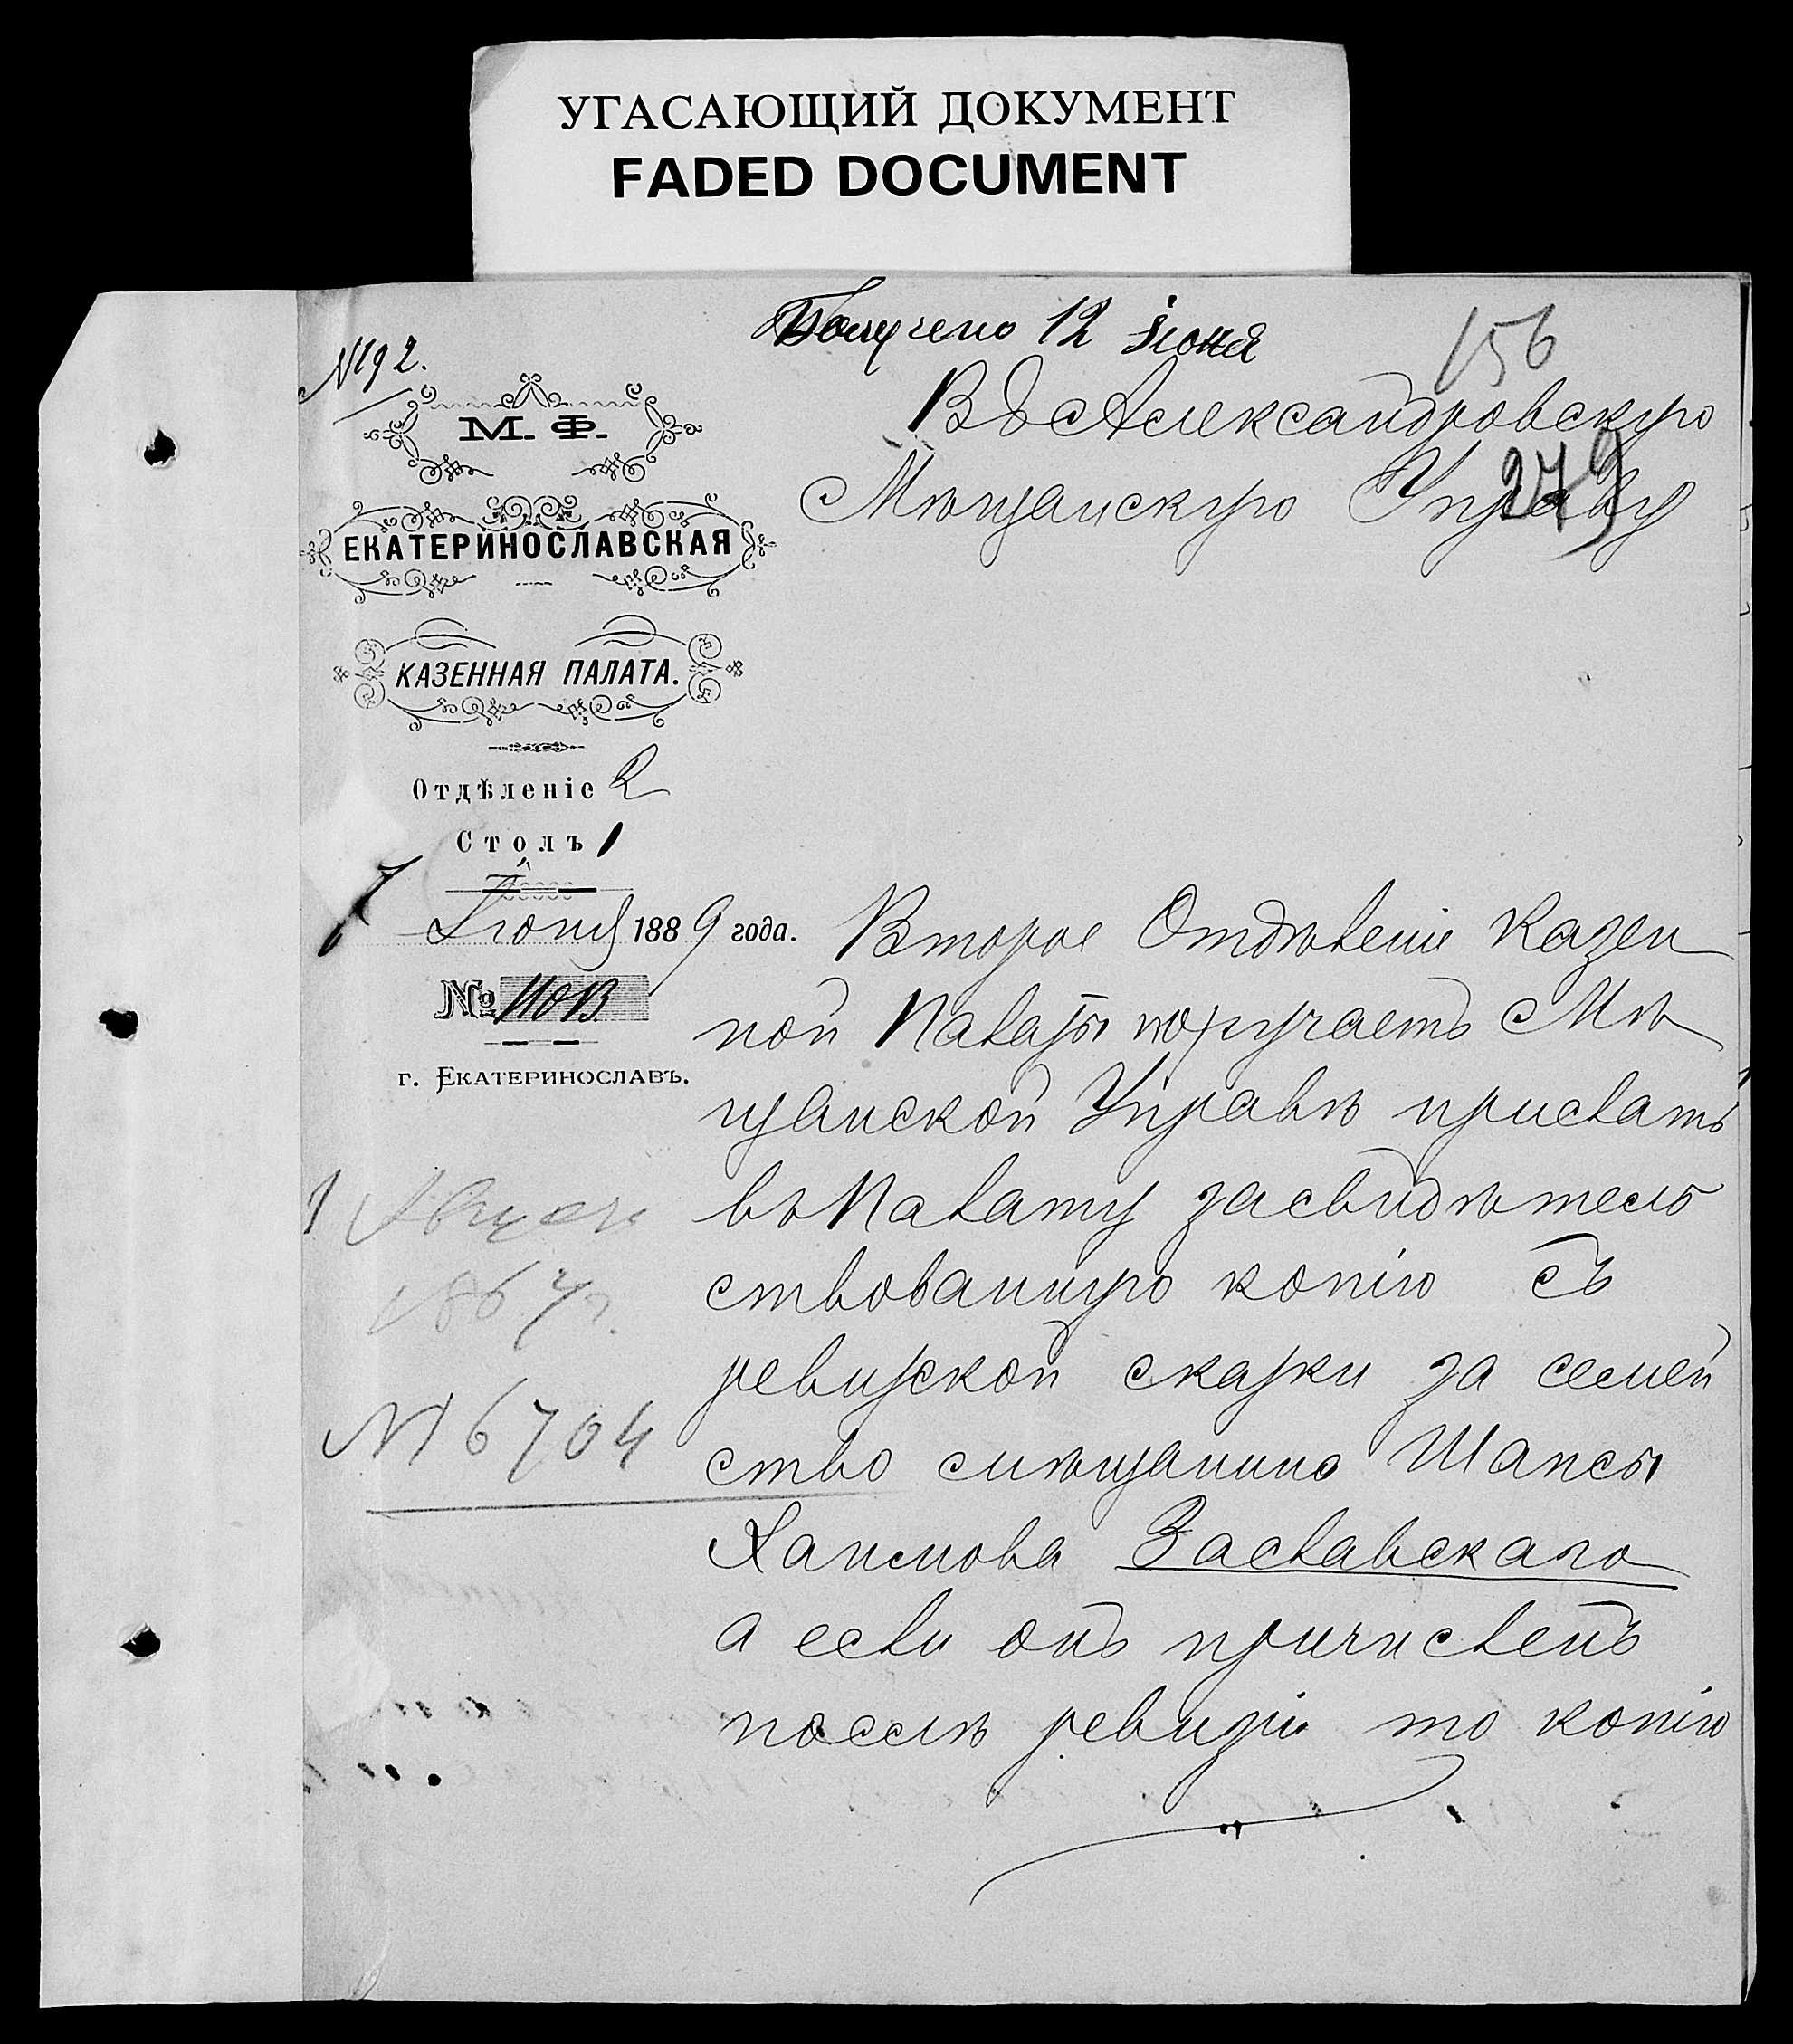 УГАСАЮЩИЙ ДОКУМЕНТ
FADED DOCUMENT
№192.
Получено 12 Іюня
156
Въ Александровскую
Мѣщанскую Управу
279
М. Ф.
ЕКАТЕРИНОСЛАВСКАЯ
КАЗЕННАЯ ПАЛАТА.
Отдѣленіе 2
Столъ 1
7 Іюня 1889 года.
№
г. Екатеринославъ.
1
186
№ 6704
Второе Отдѣленіе Казен
ной Палаты поручаетъ Мѣ
щанской Управѣ прислать
въ Палату засвидѣтель
ствованную копію съ
ревизской сказки за семей
ство мѣщанина Шапсы
Хаимова Заславскаго
а если онъ причисленъ
послѣ ревизіи то копію